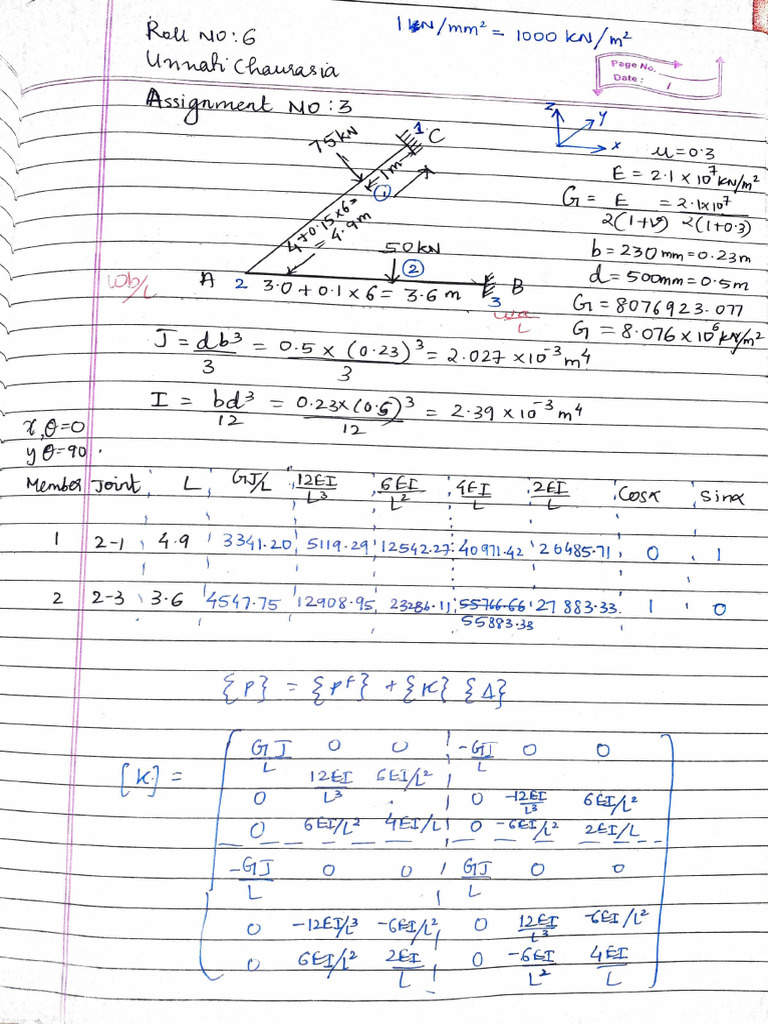 1 kN/mm² = 1000 KN/m²
Roll NO: 6
Unnati Chaurasia
Page No.
Date : /
Assignment NO: 3
75KN
1 C
1m
①
4+0.15×6=
= 4.9m
50KN
②
A 2 3.0 + 0.1 × 6 = 3.6 m
3 B
wb/L
wa/L
Z Y X
μ = 0.3
E = 2.1 × 10⁷ KN/m²
G = E/2(1+ν) = 2.1×10⁷/2(1+0.3)
b = 230 mm = 0.23m
d = 500mm = 0.5m
G = 8076923.077
G = 8.076 × 10⁶ KN/m²
J = db³/3 = 0.5 × (0.23)³/3 = 2.027 × 10⁻³ m⁴
I = bd³/12 = 0.23×(0.5)³/12 = 2.39 × 10⁻³ m⁴
x, θ=0
y θ=90.
Member Joint L GJ/L 12EI/L³ 6EI/L² 4EI/L 2EI/L Cosα Sinα
1 2-1 4.9 3341.20 5119.29 12542.27 40971.42 20485.71 0 1
2 2-3 3.6 4547.75 12908.95 23286.11 55766.66 27883.33 1 0
55883.33
{P} = {Pᶠ} + {K} {Δ}
[K] =
GJ/L 0 0 -GJ/L 0 0
0 12EI/L³ 6EI/L² 0 -12EI/L³ 6EI/L²
0 6EI/L² 4EI/L 0 -6EI/L² 2EI/L
-GJ/L 0 0 GJ/L 0 0
0 -12EI/L³ -6EI/L² 0 12EI/L³ -6EI/L²
0 6EI/L² 2EI/L 0 -6EI/L² 4EI/L